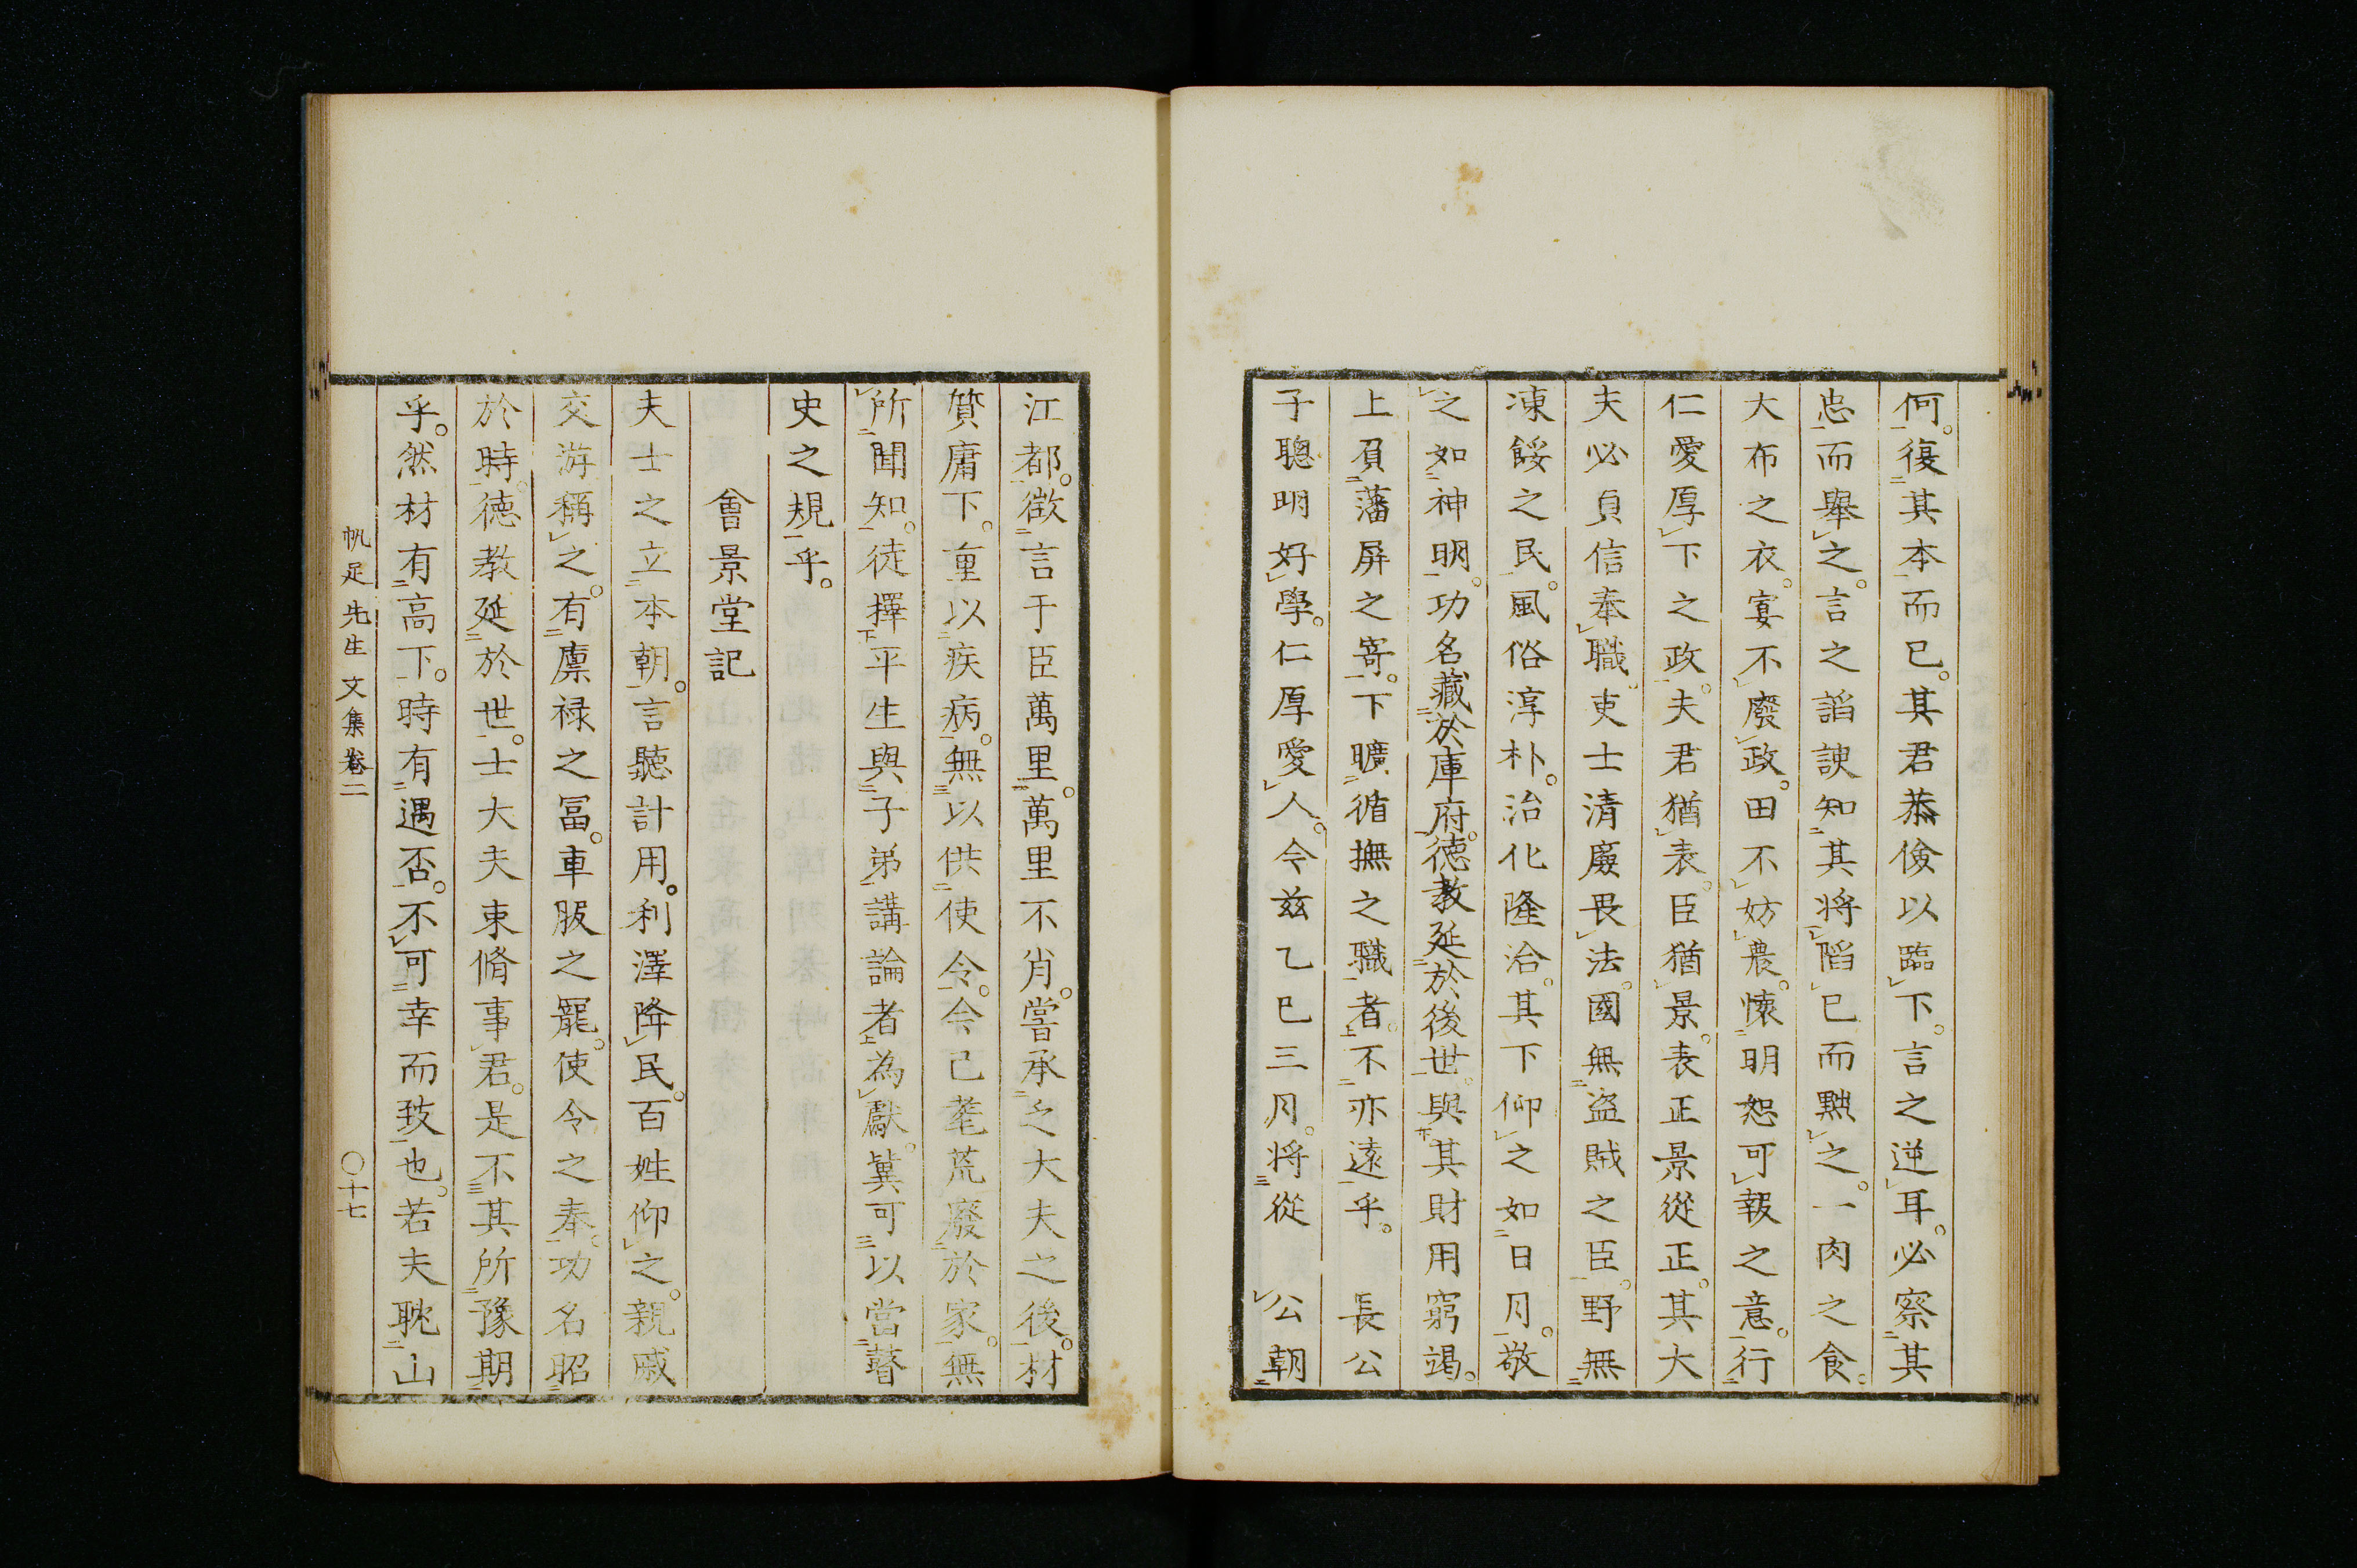 何。復其本而已。其君恭儉以臨下。言之逆耳。必察其
忠而舉之。言之諂諛知其將陷已而黜之。一肉之食。
大布之衣。宴不廢政。田不妨農。懷明恕可報之意。行
仁愛厚下之政。夫君猶表。臣猶景。表正景從正。其大
夫必貞信奉職。吏士清廉畏法。國無盜賊之臣。野無
凍餒之民。風俗淳朴。治化隆洽。其下仰之如日月。敬
之如神明。功名藏於庫府。德教延於後世。與其財用窮竭。
上負藩屏之寄。下曠循撫之職者。不亦遠乎。 長公
子聰明好學。仁厚愛人。今茲乙巳三月。將從 公朝
江都。徵言于臣萬里。萬里不肖。嘗承乏大夫之後。材
質庸下。重以疾病。無以供使令。今已耄荒廢於家。無
所聞知。徒擇平生與子弟講論者為獻。冀可以當瞽
史之規乎。
會景堂記
夫士之立本朝。言聽計用。利澤降民。百姓仰之。親戚
交游稱之。有廩祿之冨。車服之寵。使令之奉。功名昭
於時。德教延於世。士大夫束脩事君。是不其所豫期
乎。然材有高下。時有遇否。不可幸而致也。若夫耽山
帆足先生文集卷二
〇十七